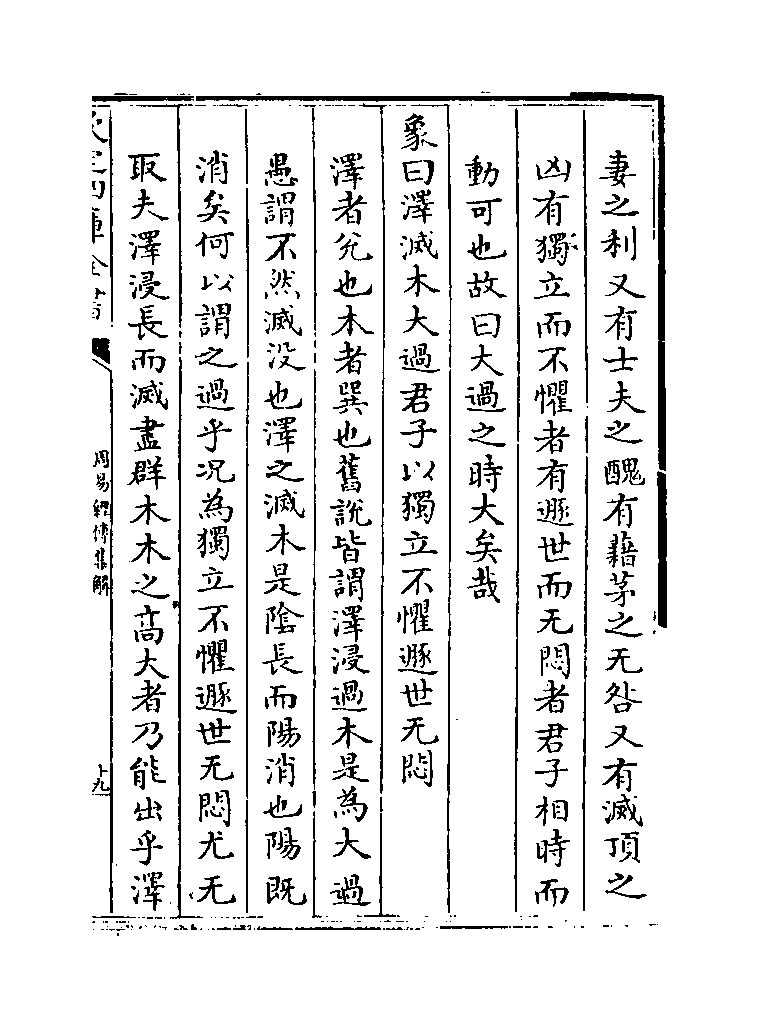 妻之利又有士夫之醜有藉茅之无咎又有滅頂之
凶有獨立而不懼者有遯世而无悶者君子相時而
動可也故曰大過之時大矣哉
象曰澤滅木大過君子以獨立不懼遯世无悶
澤者兊也木者巽也舊說皆謂澤浸過木是為大過
愚謂不然滅没也澤之滅木是隂長而陽消也陽既
消矣何以謂之過乎况為獨立不懼遯世无悶尤无
取夫澤浸長而滅盡群木木之高大者乃能出乎澤
欽定四庫全書
周易經傳集解
十九